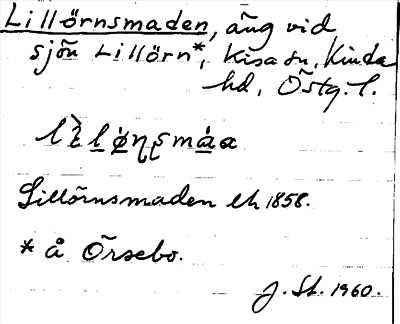 Lillörnsmaden, äng vid
sjön Lillörn*, Kisa sn, Kinda
hd, Östg. l.
Lillörnsmaden lh 1858.
* å Örsebo.
J. St. 1960.